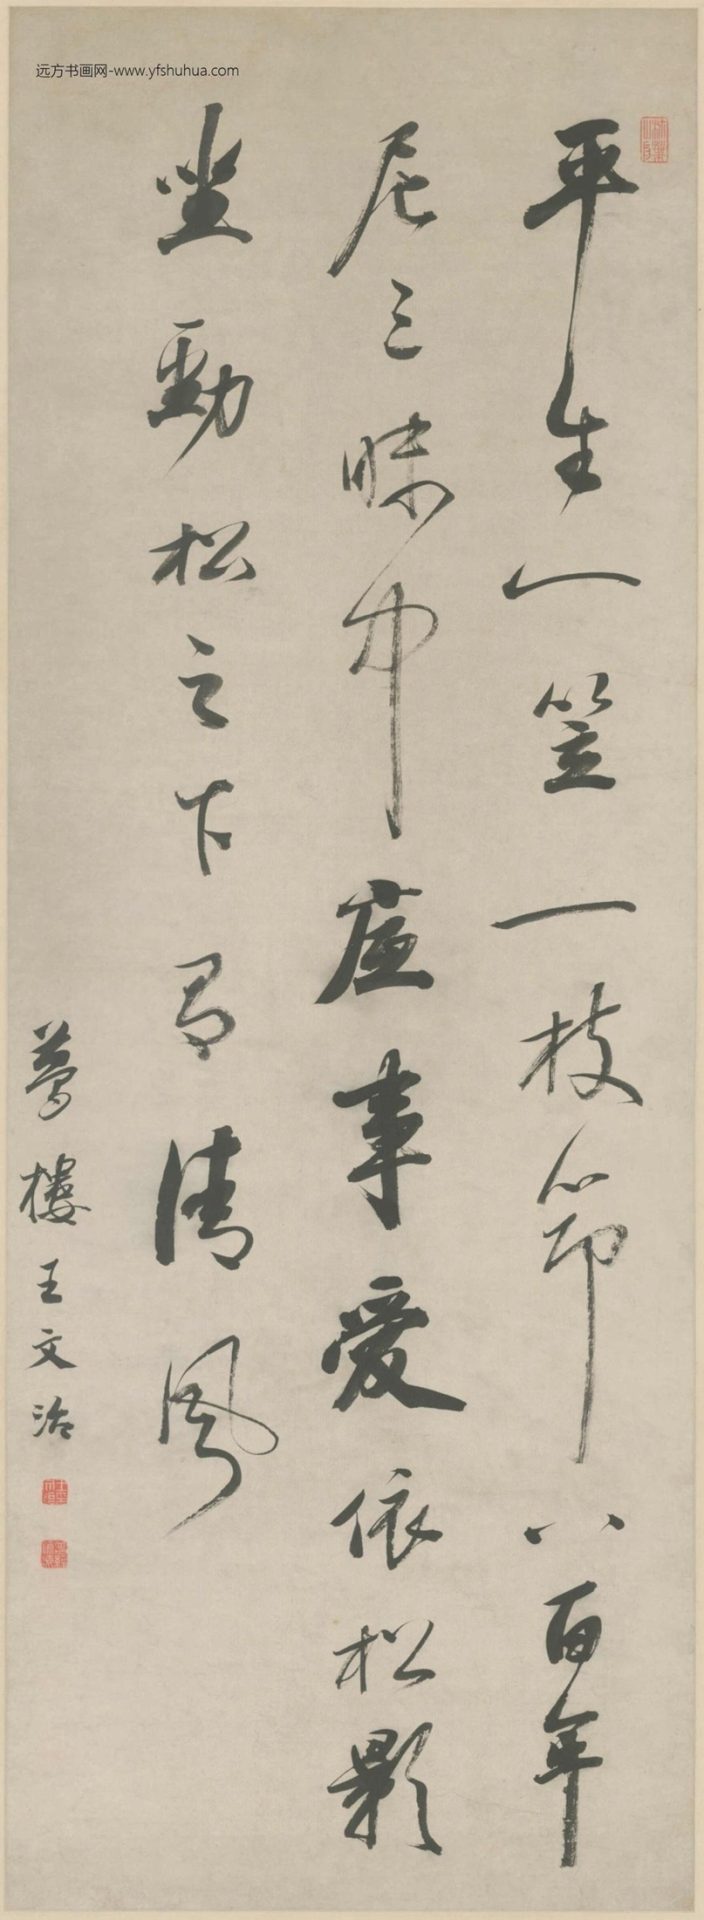 远方书画网-www.yfshuhua.com
平生一笠一枝笻八百年
尼三昧中虚事爱依松影
坐劲松之下有清风
梦楼王文治